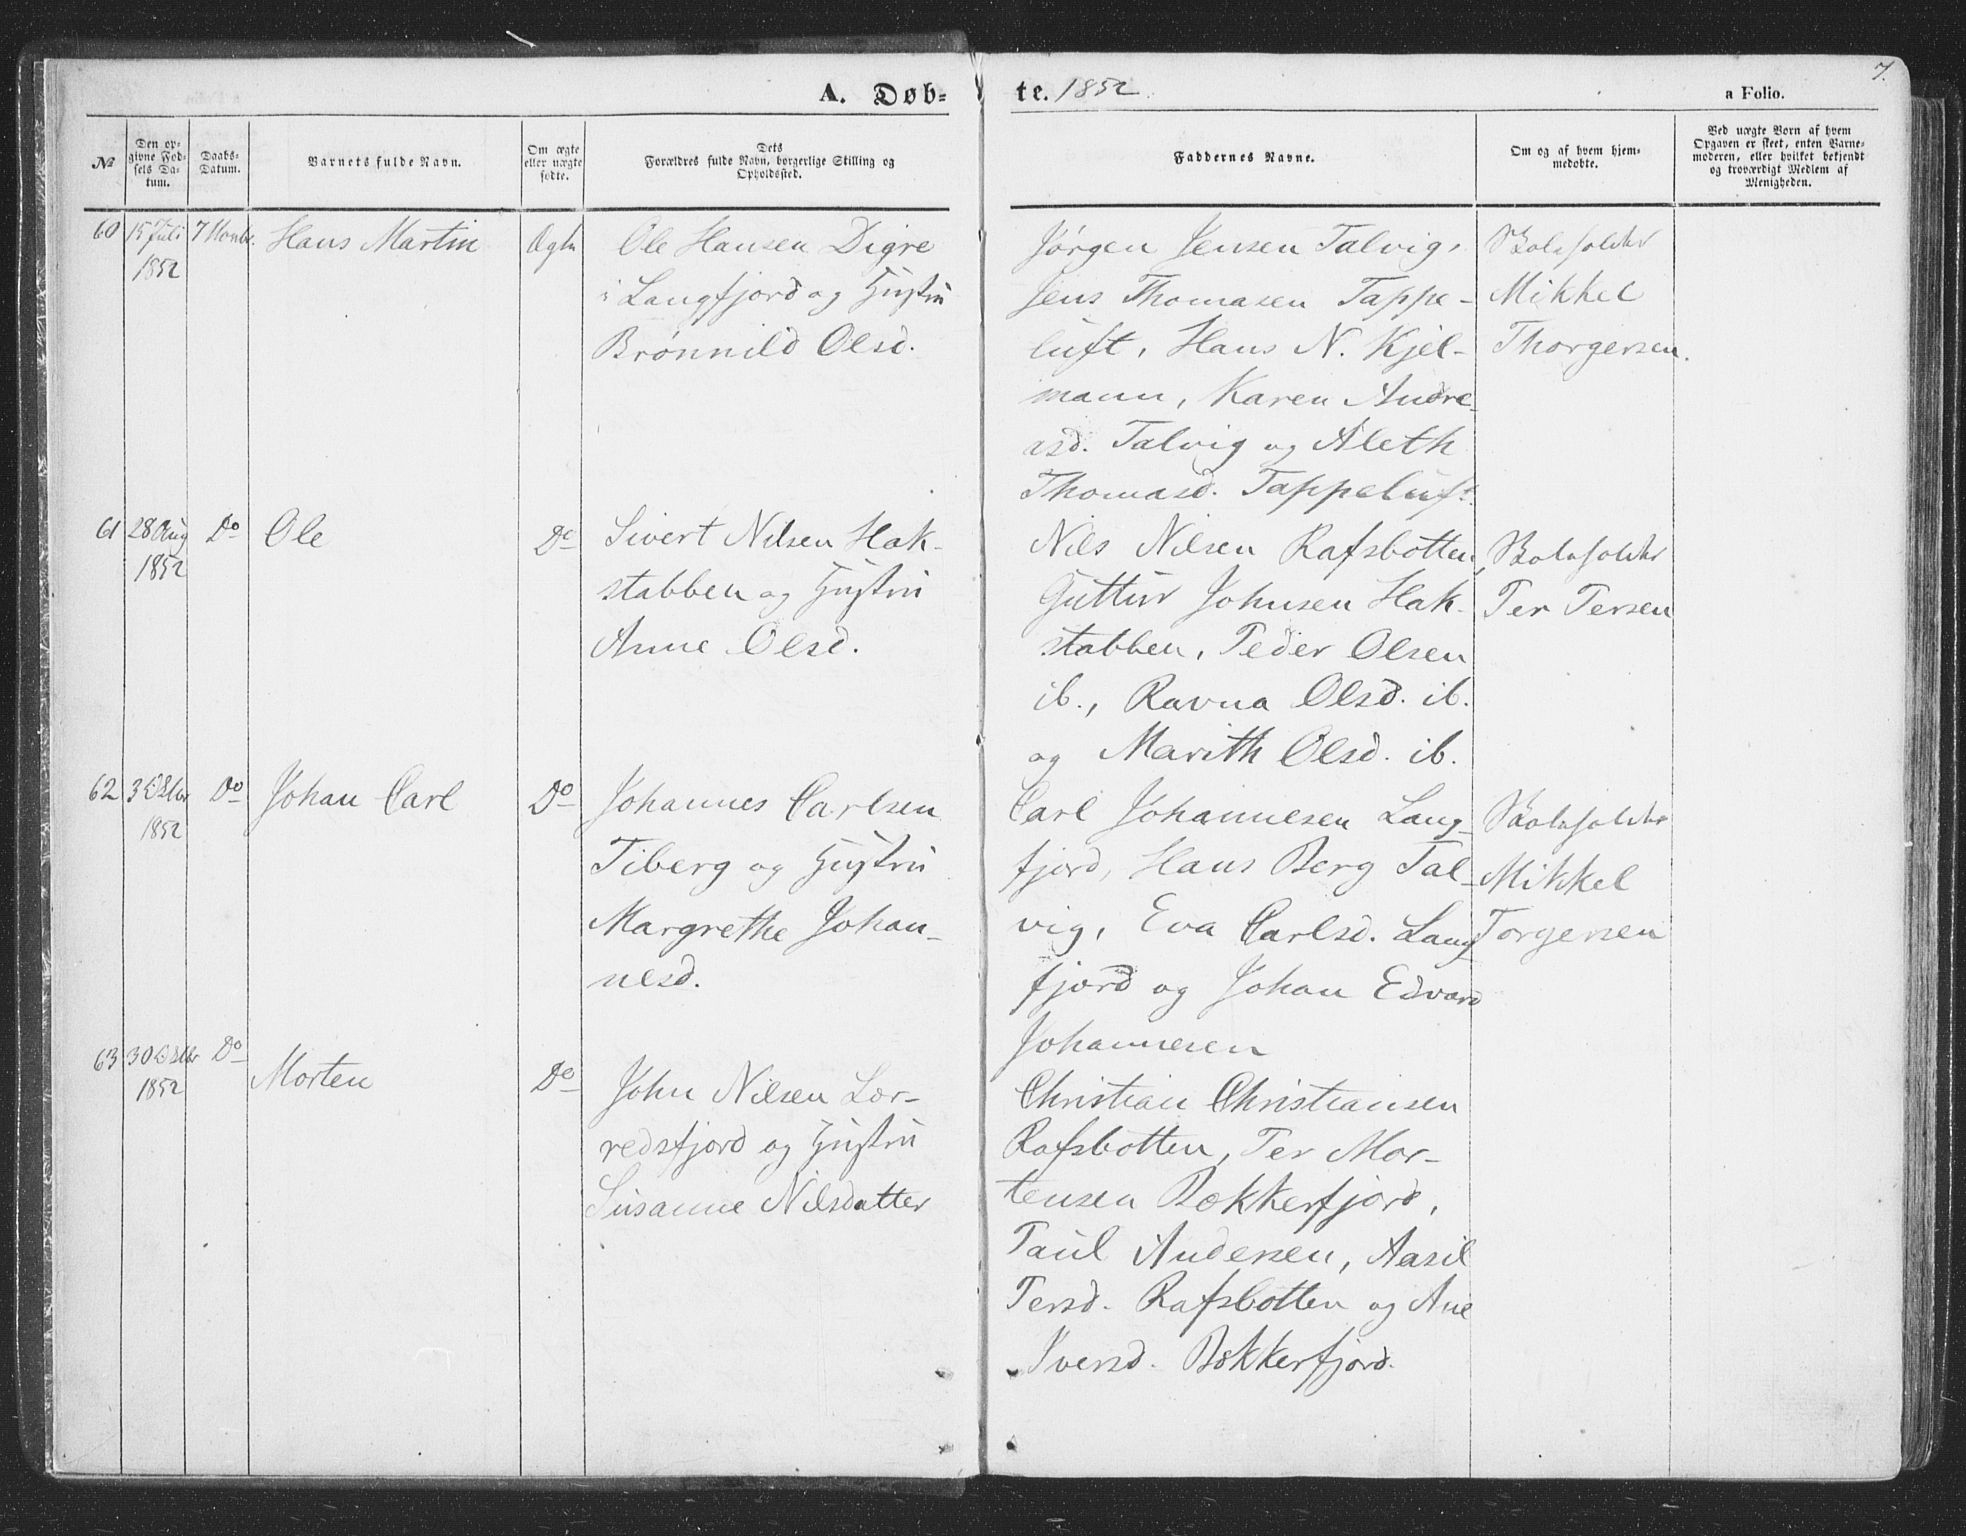 7.
A. Døb- te. 1852.
a Folio.
No
Den op-
givne Fød-
sels Da-
tum.
Daabs-
Datum.
Barnets fulde Navn.
Om ægte
eller uægte
fødte.
Dets
Forældres fulde Navn, borgerlige Stilling og
Opholdssted.
Faddernes Navne.
Om og af hvem hjem-
medøbte.
Ved uægte Børn af hvem
Opgaven er skeet, enten Barne-
moderen, eller hvilket bekjendt
og troværdigt Medlem af
Menigheden.
60
15 Juli
1852
7 Novbr.
Hans Martin
Ægte
Ole Hansen Digre
i Langfjord og Hustru
Brønnild Olsd.
Jørgen Jensen Talvig,
Jens Thomasen Tappe-
luft, Hans N. Kjel-
mann, Karen Andre-
asd. Talvig og Aleth
Thomasd. Tappeluft.
Skoleholder
Mikkel
Thorgersen.
61
28 Aug
1852
Do
Ole
Do
Sivert Nilsen Hak-
stabben og Hustru
Anne Olsd.
Nils Nilsen Rafsbotten,
Guttur Johnsen Hak-
stabben, Peder Olsen
ib., Ravna Olsd. ib.
og Marith Olsd. ib.
Skoleholder
Per Persen
62
3 Octbr
1852
Do
Johan Carl
Do
Johannes Carlsen
Tiberg og Hustru
Margrethe Johan-
nesd.
Carl Johannesen Lang-
fjord, Hans Berg Tal-
vig, Eva Carlsd. Lang-
fjord og Johan Edvard
Johannesen
Skoleholder
Mikkel
Torgersen
63
30 Octbr
1852
Do
Morten
Do
John Nilsen Lær-
redsfjord og Hustru
Susanne Nilsdatter
Christian Christiansen
Rafsbotten, Per Mor-
tensen Bekkerfjord,
Paul Andersen, Aasil
Persd. Rafsbotten og Ane
Iversd. Bekkerfjord.